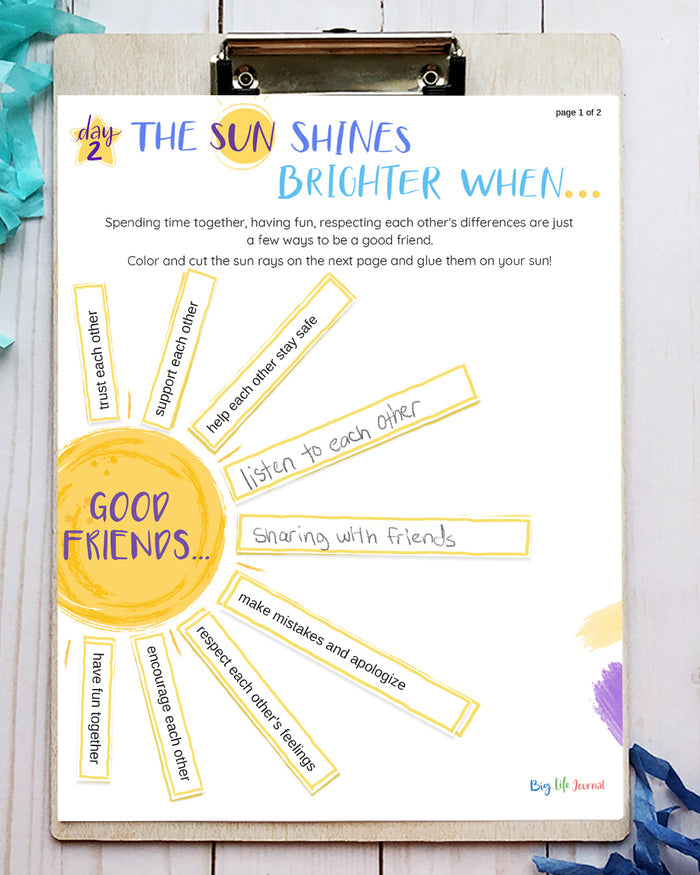 page 1 of 2
day
2
THE SUN SHINES
BRIGHTER WHEN...
Spending time together, having fun, respecting each other's differences are just
a few ways to be a good friend.
Color and cut the sun rays on the next page and glue them on your sun!
trust each other
support each other
help each other stay safe
listen to each other
GOOD
FRIENDS...
sharing with friends
make mistakes and apologize
respect each other's feelings
encourage each other
have fun together
Big Life Journal